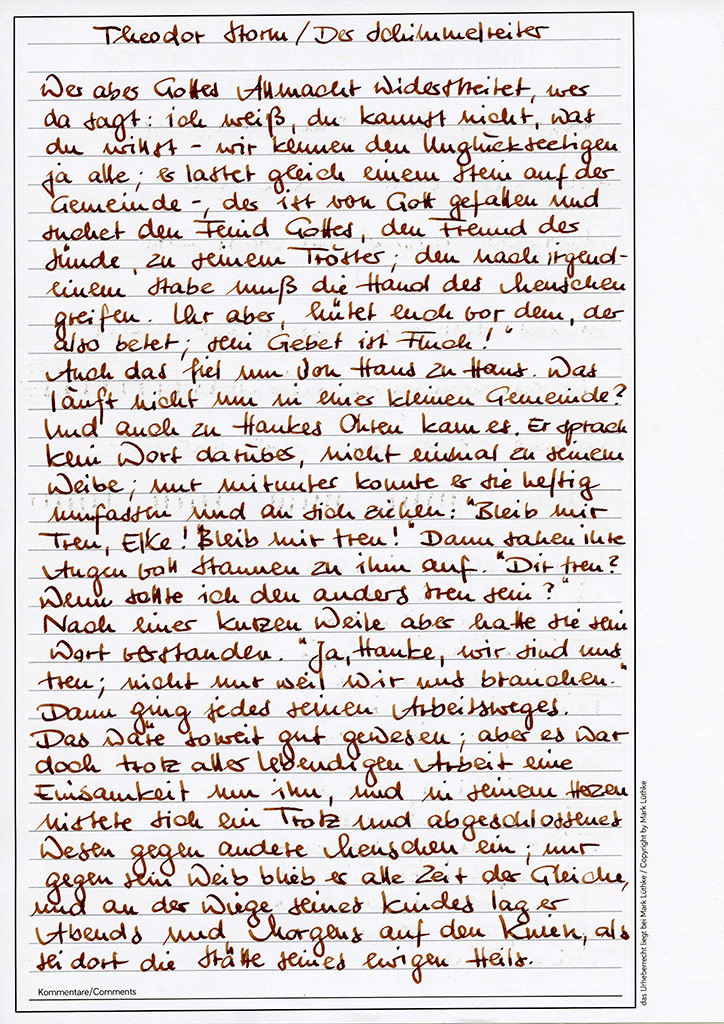 Theodor Storm / Der Schimmelreiter
Wer aber Gottes Allmacht widerstreitet, wer
da sagt: ich weiß, du kannst nicht, was
du willst - wir kennen den Unglückseeligen
ja alle; er lastet gleich einem Stein auf der
Gemeinde -, der ist von Gott gefallen und
suchet den Feind Gottes, den Freund der
Sünde, zu seinem Tröster; den nach irgend-
einem Stabe muß die Hand des Menschen
greifen. Ihr aber, hütet euch vor dem, der
also betet; sein Gebet ist Fluch!"
Auch das fiel um von Haus zu Haus. Was
läuft nicht um in einer kleinen Gemeinde?
Und auch zu Haukes Ohren kam es. Er sprach
kein Wort darüber, nicht einmal zu seinem
Weibe; nur mitunter konnte er sie heftig
umfassen und an sich ziehen: "Bleib mir
Treu, Elke! Bleib mir treu!" Dann sahen ihre
Augen voll Staunen zu ihm auf. "Dir treu?
Wenn sollte ich den anders treu sein?"
Nach einer kurzen Weile aber hatte sie sein
Wort verstanden. "Ja, Hauke, wir sind uns
treu; nicht nur weil wir uns brauchen."
Dann ging jedes seinen Arbeitsweges.
Das wäre soweit gut gewesen; aber es war
doch trotz aller lebendigen Arbeit eine
Einsamkeit um ihn, und in seinem Herzen
nistete sich ein Trotz und abgeschlossenes
Wesen gegen andere Menschen ein; nur
gegen sein Weib blieb er alle Zeit der Gleiche,
und an der Wiege seines Kindes lag er
Abends und Morgens auf den Knien, als
sei dort die Stätte seines ewigen Heils.
Kommentare/Comments
das Urheberrecht liegt bei Mark Lüthke / Copyright by Mark Lüthke